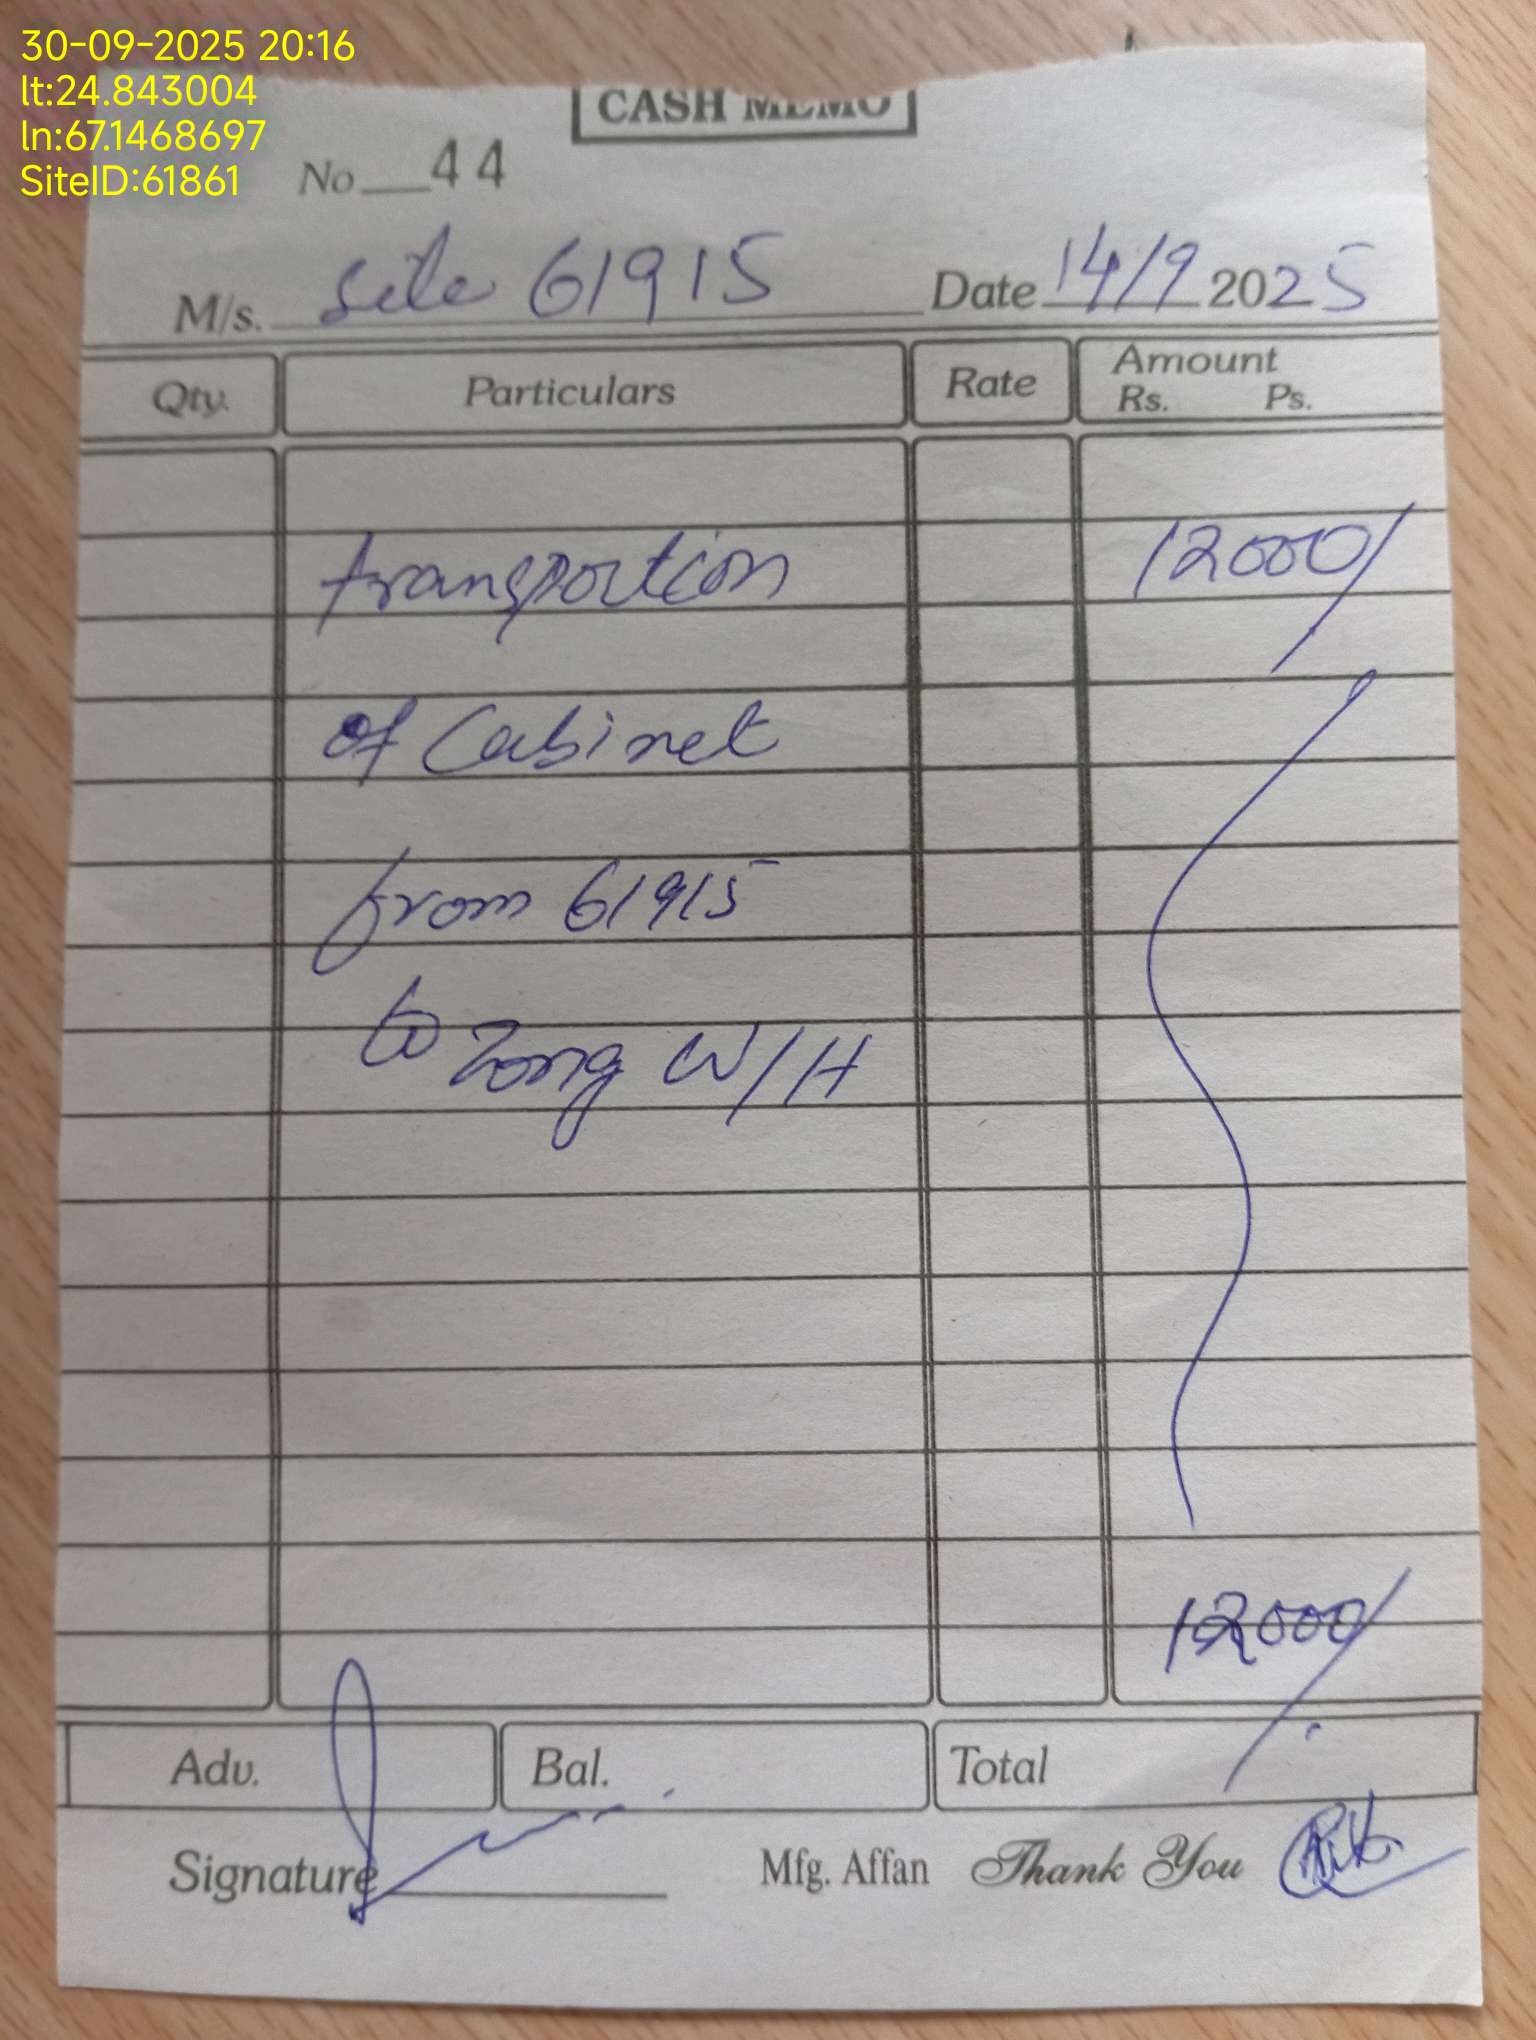 30-09-2025 20:16
lt:24.843004
ln:67.1468697
SiteID:61861
CASH MEMO
No 44
M/s. Site 61915 Date 14/9 2025
Qty. Particulars Rate Amount
Rs. Ps.
transportion 12000/
of Cabinet
from 61915
to Zong W/H
12000/
Adv. Bal. Total
Signature Mfg. Affan Thank You